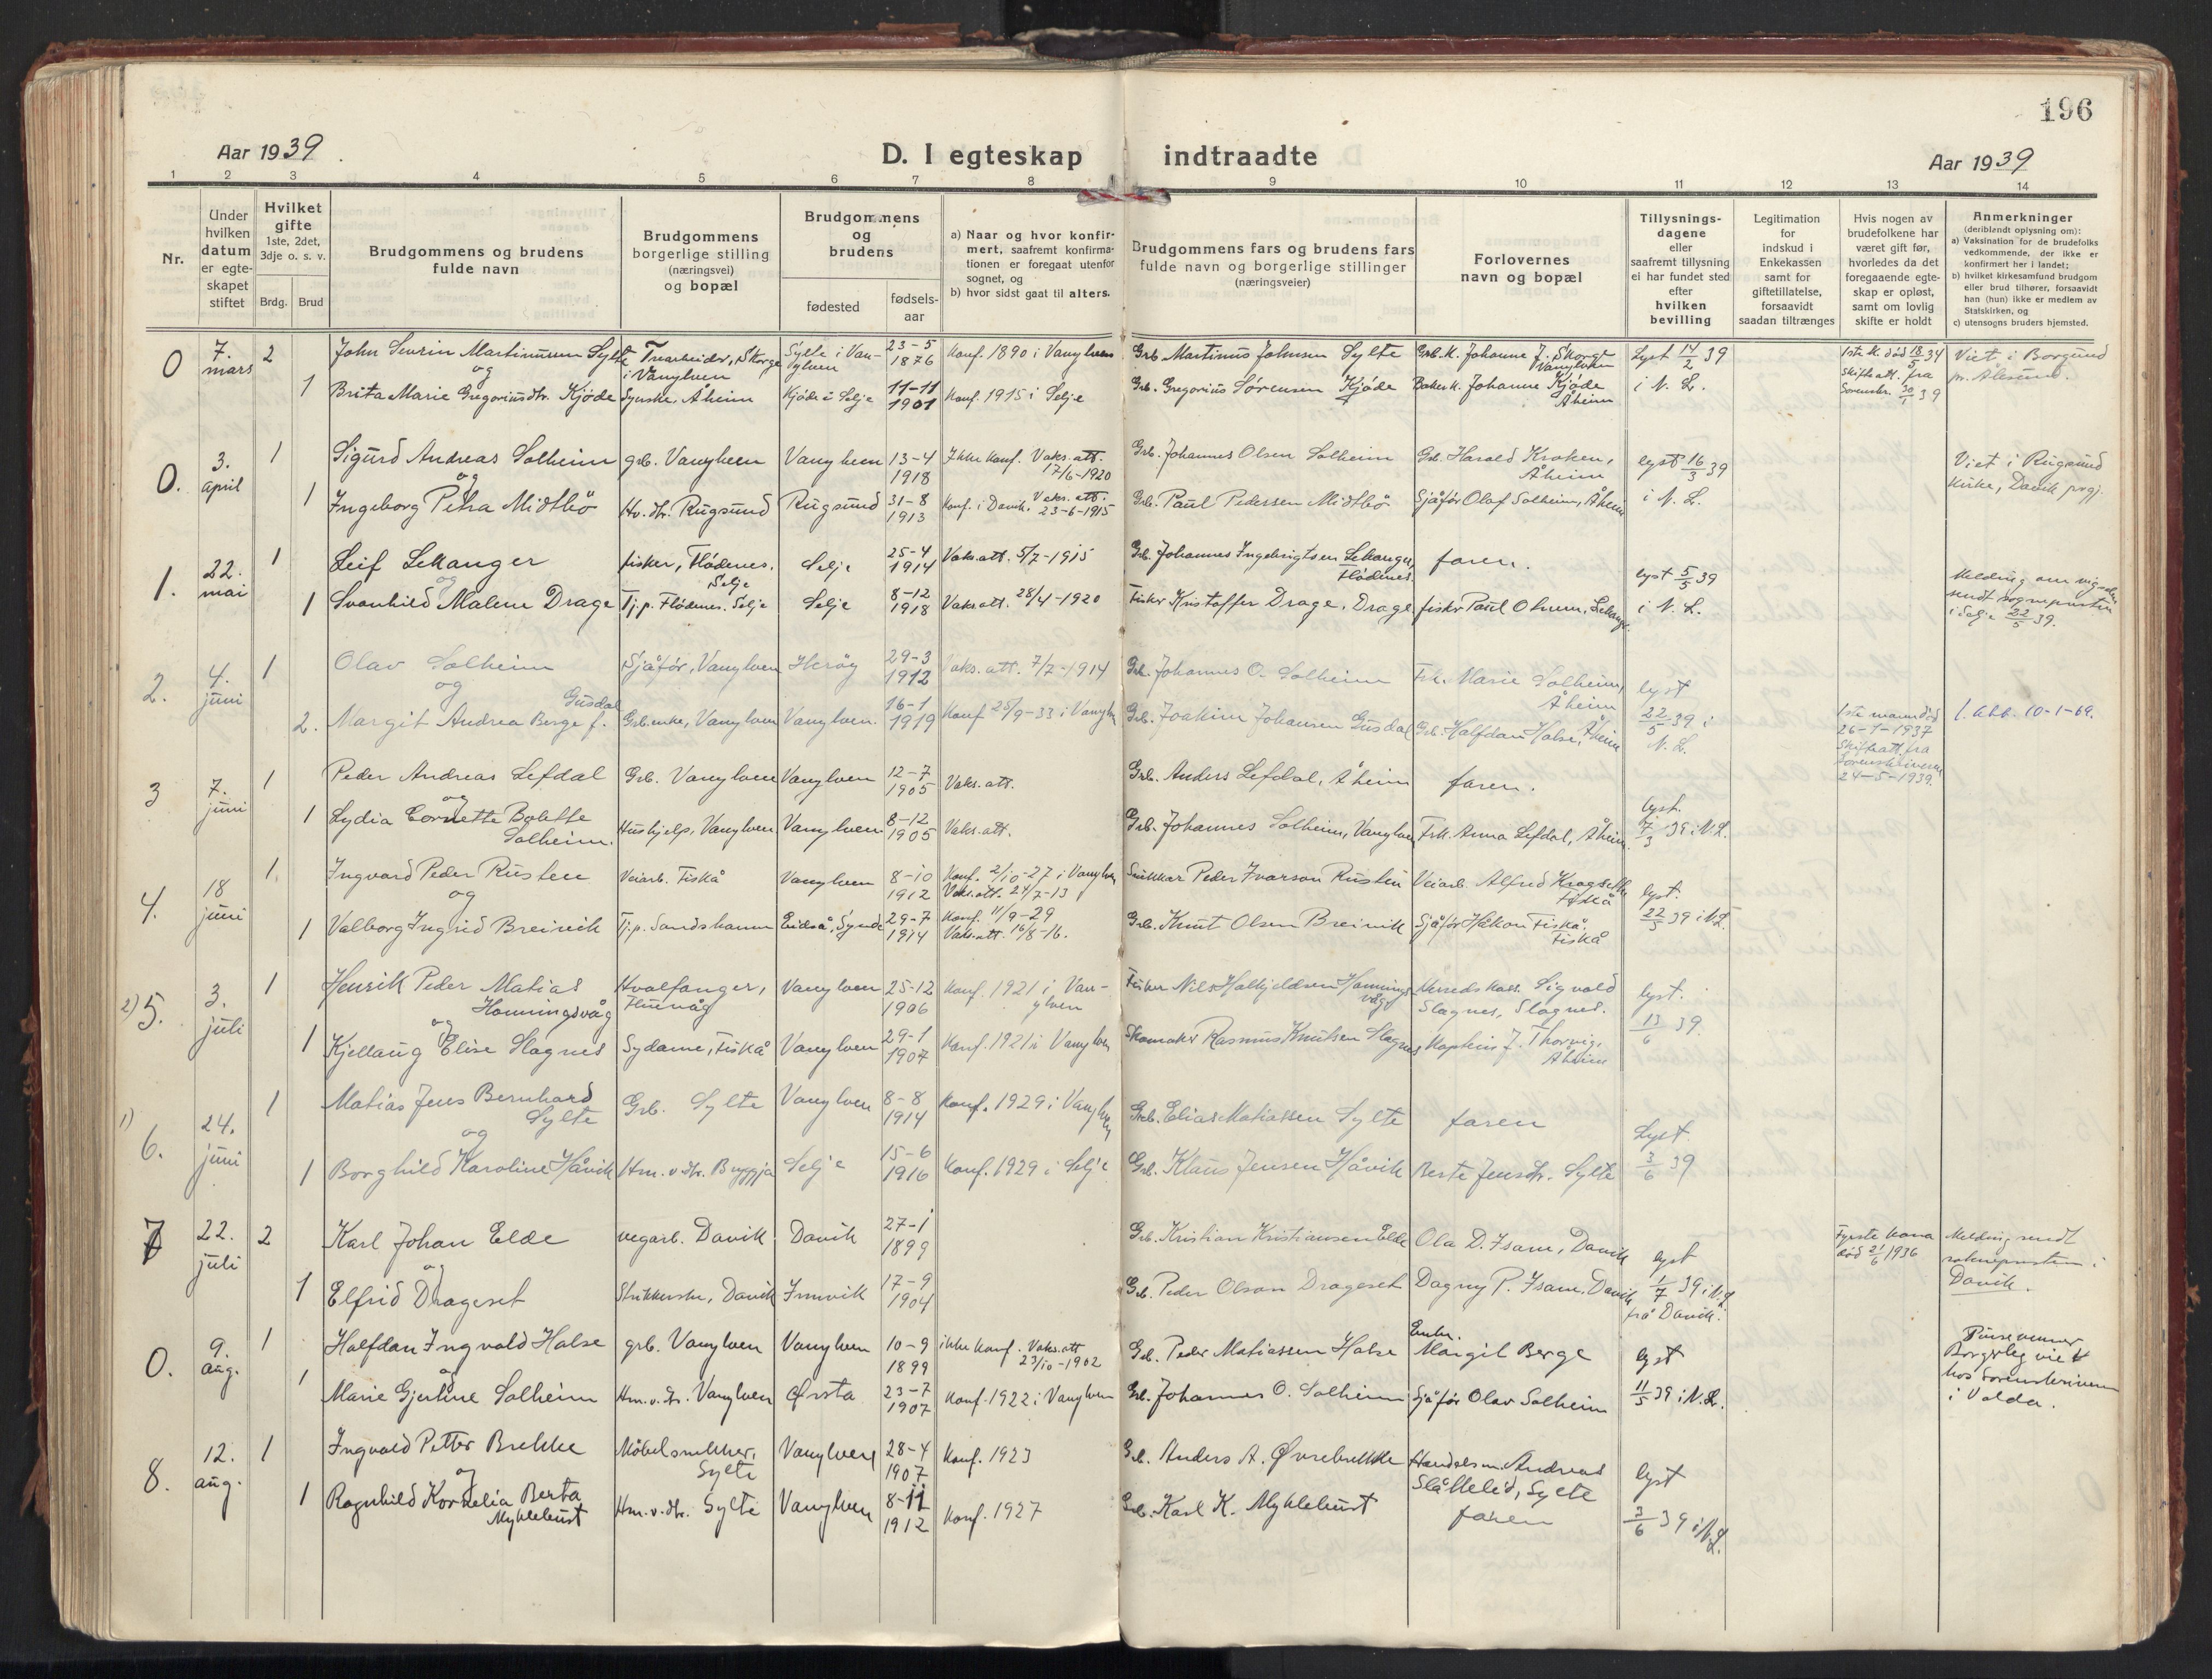 196
Aar 1939
D. I egteskap indtraadte
Aar 1939
1 2 3 4 5 6 7 8 9 10 11 12 13 14
Nr.
Under hvilken datum er egteskapet stiftet
Hvilket gifte 1ste, 2det, 3dje o. s. v.
Brdg. Brud
Brudgommens og brudens fulde navn
Brudgommens borgerlige stilling (næringsvei) og bopæl
Brudgommens og brudens
fødested
fødsels-aar
a) Naar og hvor konfirmert, saafremt konfirmationen er foregaat utenfor sognet, og
b) hvor sidst gaat til alters.
Brudgommens fars og brudens fars fulde navn og borgerlige stillinger (næringsveier)
Forlovernes navn og bopæl
Tillysningsdagene eller saafremt tillysning ei har fundet sted efter hvilken bevilling
Legitimation for indskud i Enkekassen samt for giftetillatelse, forsaavidt saadan tiltrænges
Hvis nogen av brudefolkene har været gift før, hvorledes da det foregaaende egteskap er opløst, samt om lovlig skifte er holdt
Anmerkninger (deriblandt oplysning om):
a) Vaksination for de brudefolks vedkommende, der ikke er konfirmert her i landet;
b) hvilket kirkesamfund brudgom eller brud tilhører, forsaavidt han (hun) ikke er medlem av Statskirken, og
c) utensogns bruders hjemsted.
0 7. mars 2 John Sevrin Martinusen Sylte, Skorge i Vanylven Sylte i Vanylven 23-5 1876 Konf. 1890 i Vanylven Grb. Martinus Johnsen Sylte Grb.k. Johanne J. Skorge Vanylven Lyst 14/2 39 1ste k. død 18/5 34 Viet i Borgund
og
1 Brita Marie Gregoriusdtr. Kjøde Syerske, Åheim Kjøde i Selje 11-11 1901 Konf. 1915 i Selje Grb. Gregorius Sørensen Kjøde Johanne Kjøde Åheim i N. L. Skifteatt. fra Sorenskr. 30/1 39 pr. Ålesund.
0. 3. april 1 Sigurd Andreas Solheim grb. Vanylven Vanylven 13-4 1918 Ikke konf. Vaks. att. 17/6-1920 Grb. Johannes Olsen Solheim Grb. Harald Kroken, Åheim lyst 16/3 39 Viet i Rugsund
og
1 Ingeborg Petra Midtbø Hv. dtr. Rugsund Rugsund 31-8 1913 Konf. i Davik. Vaks. att. 23-6-1915 Grb. Paul Pedersen Midtbø Sjåfør Olaf Solheim, Åheim i N. L. kirke, Davik prgj.
1. 22. mai 1 Leif Lekanger fisker, Flødenes, Selje Selje 25-4 1914 Vaks. att. 5/7-1915 Grb. Johannes Ingebrigtsen Lekanger, Flødenes faren. lyst 5/5 39
og
1 Svanhild Malene Drage Tj.p. Flødenes. Selje Selje 8-12 1918 Vaks att. 28/4-1920 Fisker Kristoffer Drage, Drage fisker Paul Lekanger i N. L. Melding om vigselen sendt sognepresten i Selje 22/5 39.
2. 4. juni 1 Olav Solheim Sjåfør, Vanylven Herøy 29-3 1912 Vaks. att. 7/7-1914 Grb. Johannes O. Solheim Frk. Marie Solheim, Åheim lyst
og
2. Margit Andrea Berge f. Gusdal Grb.enke, Vanylven Vanylven 16-1 1919 Konf 25/9-33 i Vanylven Grb. Joakim Johansen Gusdal Grb. Halfdan Halse, Åheim 22/5 39 i N. L. 1ste mann død 26-1-1937 Skifteatt. fra Sorenskriveren 24-5-1939. 10-1-69.
3 7. juni 1 Peder Andreas Lefdal Grb. Vanylven Vanylven 12-7 1905 Vaks. att. Grb. Anders Lefdal, Åheim faren.
og
1 Lydia Cornette Bolette Solheim. Hushjelp, Vanylven Vanylven 8-12 1905 Vaks. att. Grb. Johannes Solheim, Vanylven Frk. Anna Lefdal, Åheim lyst. 7/3 39 i N. L.
4. 18 juni 1. Ingvard Peder Rusten Veiarb. Fiskå Vanylven 8-10 1912 Konf. 2/10-27 i Vanylven Vaks. att. 24/7-13 Snikkar Peder Ivarson Rusten Veiarb. Alfred Kragset Fiskå lyst.
og
1 Valborg Ingrid Breivik Tj.p. Sandshamn Eidså, Syvde 29-7 1914 Konf. 11/9-29 Vaks. att. 16/8-16. Grb. Knut Olsen Breivik Sjåfør Håkon Fiskå, Fiskå 22/5 39 i N. L.
2) 5. 3. juli 1 Henrik Peder Matias Honningdsvåg Hvalfanger, Vanylven 25-12 1906 Konf. 1921 i Vanylven Fisker Nils Honningsvåg Herredskass. Sigvald Slagnes, Slagnes. lyst.
og
1 Kjellaug Elise Slagnes Sydame, Fiskå Vanylven 29-1 1907 Konf. 1921 i Vanylven Skomaker Rasmus Knutsen Slagnes Kaptein J. Thorvig, Åheim 13/6 39.
1) 6. 24. juni 1 Matias Jens Bernhard Sylte Grb. Sylte Vanylven 8-8 1914 Konf. 1929 i Vanylven Grb. Elias Matiassen Sylte faren Lyst.
og
1 Borghild Karoline Håvik Hm. v. dtr. Bryggja Selje 15-6 1916 Konf. 1929 i Selje Grb. Klaus Jensen Håvik Berte Jensdtr. Sylte 3/6 39
7 22. juli 2 Karl Johan Elde vegarb. Davik Davik 27-1 1899 Grb. Kristian Kristiansen Elde Ola D. Isane, Davik lyst Fyrste kona død 21/6 1936 Melding sendt
og
1 Elfrid Drageset Strikkerske, Davik Innvik 17-9 1904 Grb. Peder Olson Drageset Dagny P. Isane, Davik 1/7 39 i N. L. frå Davik. soknepresten i Davik.
0. 9. aug. 1 Halfdan Ingvald Halse grb. Vanylven Vanylven 10-9 1899 ikke konf. Vaks. att 23/10-1902 Grb. Peder Matiassen Halse Enke. Margit Berge lyst Pinsevenner
og
1 Marie Gjertine Solheim Hm. v. dtr. Vanylven Ørsta 23-7 1907 Konf. 1922 i Vanylven Grb. Johannes O. Solheim Sjåfør Olav Solheim 11/5 39 i N. L. Borgerleg viet hos Sorenskriveren i Volda.
8. 12. aug. 1 Ingvald Petter Brekke Møbelsnekker, Sylte Vanylven 28-4 1907 Konf. 1923 Grb. Anders A. Øvrebrekke Handelsm. Andreas Slåttelid, Sylte lyst
og
1 Ragnhild Kornelia Berta Myklebust Hm. v. dtr. Sylte Vanylven 8-11 1912 Konf. 1927 Grb. Karl K. Myklebust faren 3/6 39 i N. L.